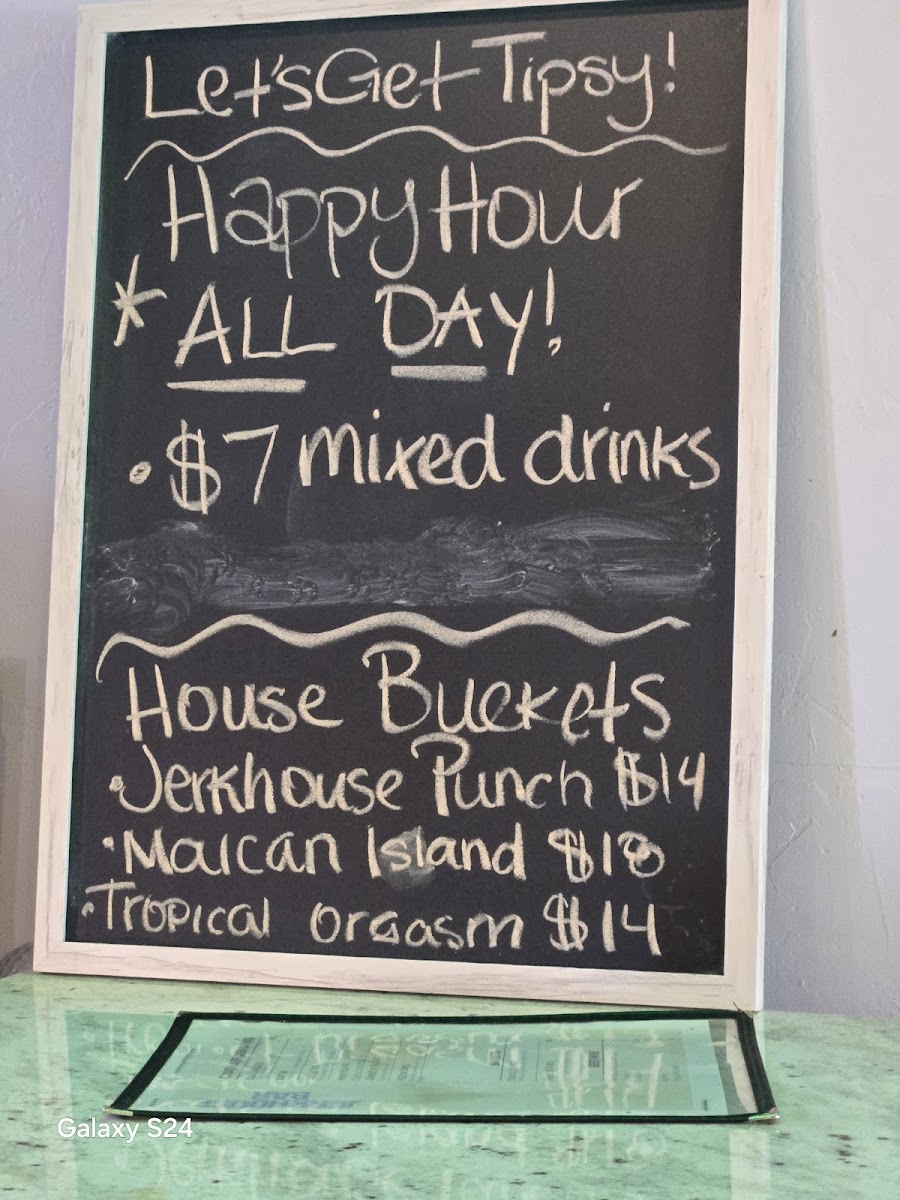 Let's Get Tipsy!
Happy Hour
* ALL DAY!
• $7 mixed drinks
House Buckets
• Jerkhouse Punch $14
• Maican Island $18
• Tropical orgasm $14
Galaxy S24